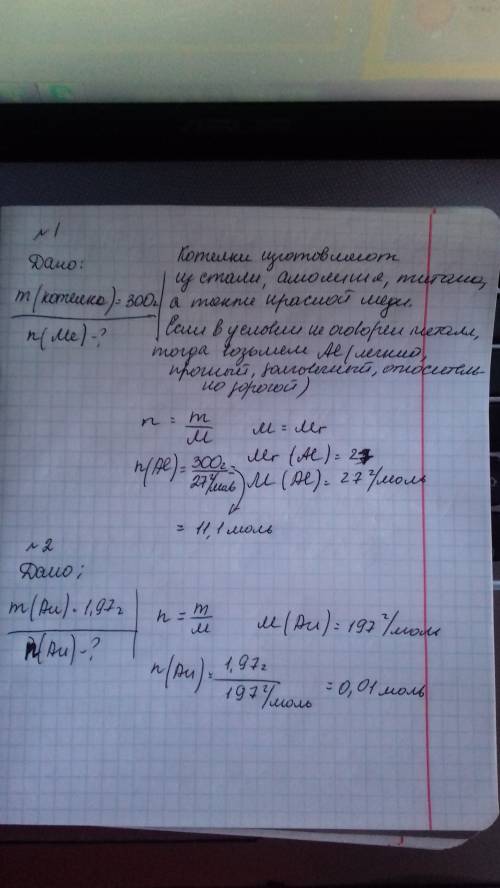 №1
Дано:
m(котелка)=300г
n(Me)-?
Котелки изготовляют
из стали, алюминия, титана,
а также красной меди.
Если в условии не оговорен металл,
тогда возьмем Al (легкий,
прочный, долговечный, относитель-
но дорогой)
n = m/M   M = Mr
n(Al) = 300г/27г/моль =   Mr(Al) = 27
M(Al) = 27г/моль
= 11,1 моль
№2
Дано:
m(Au) = 1,97г
n(Au)-?
n = m/M   M(Au) = 197г/моль
n(Au) = 1,97г/197г/моль = 0,01 моль